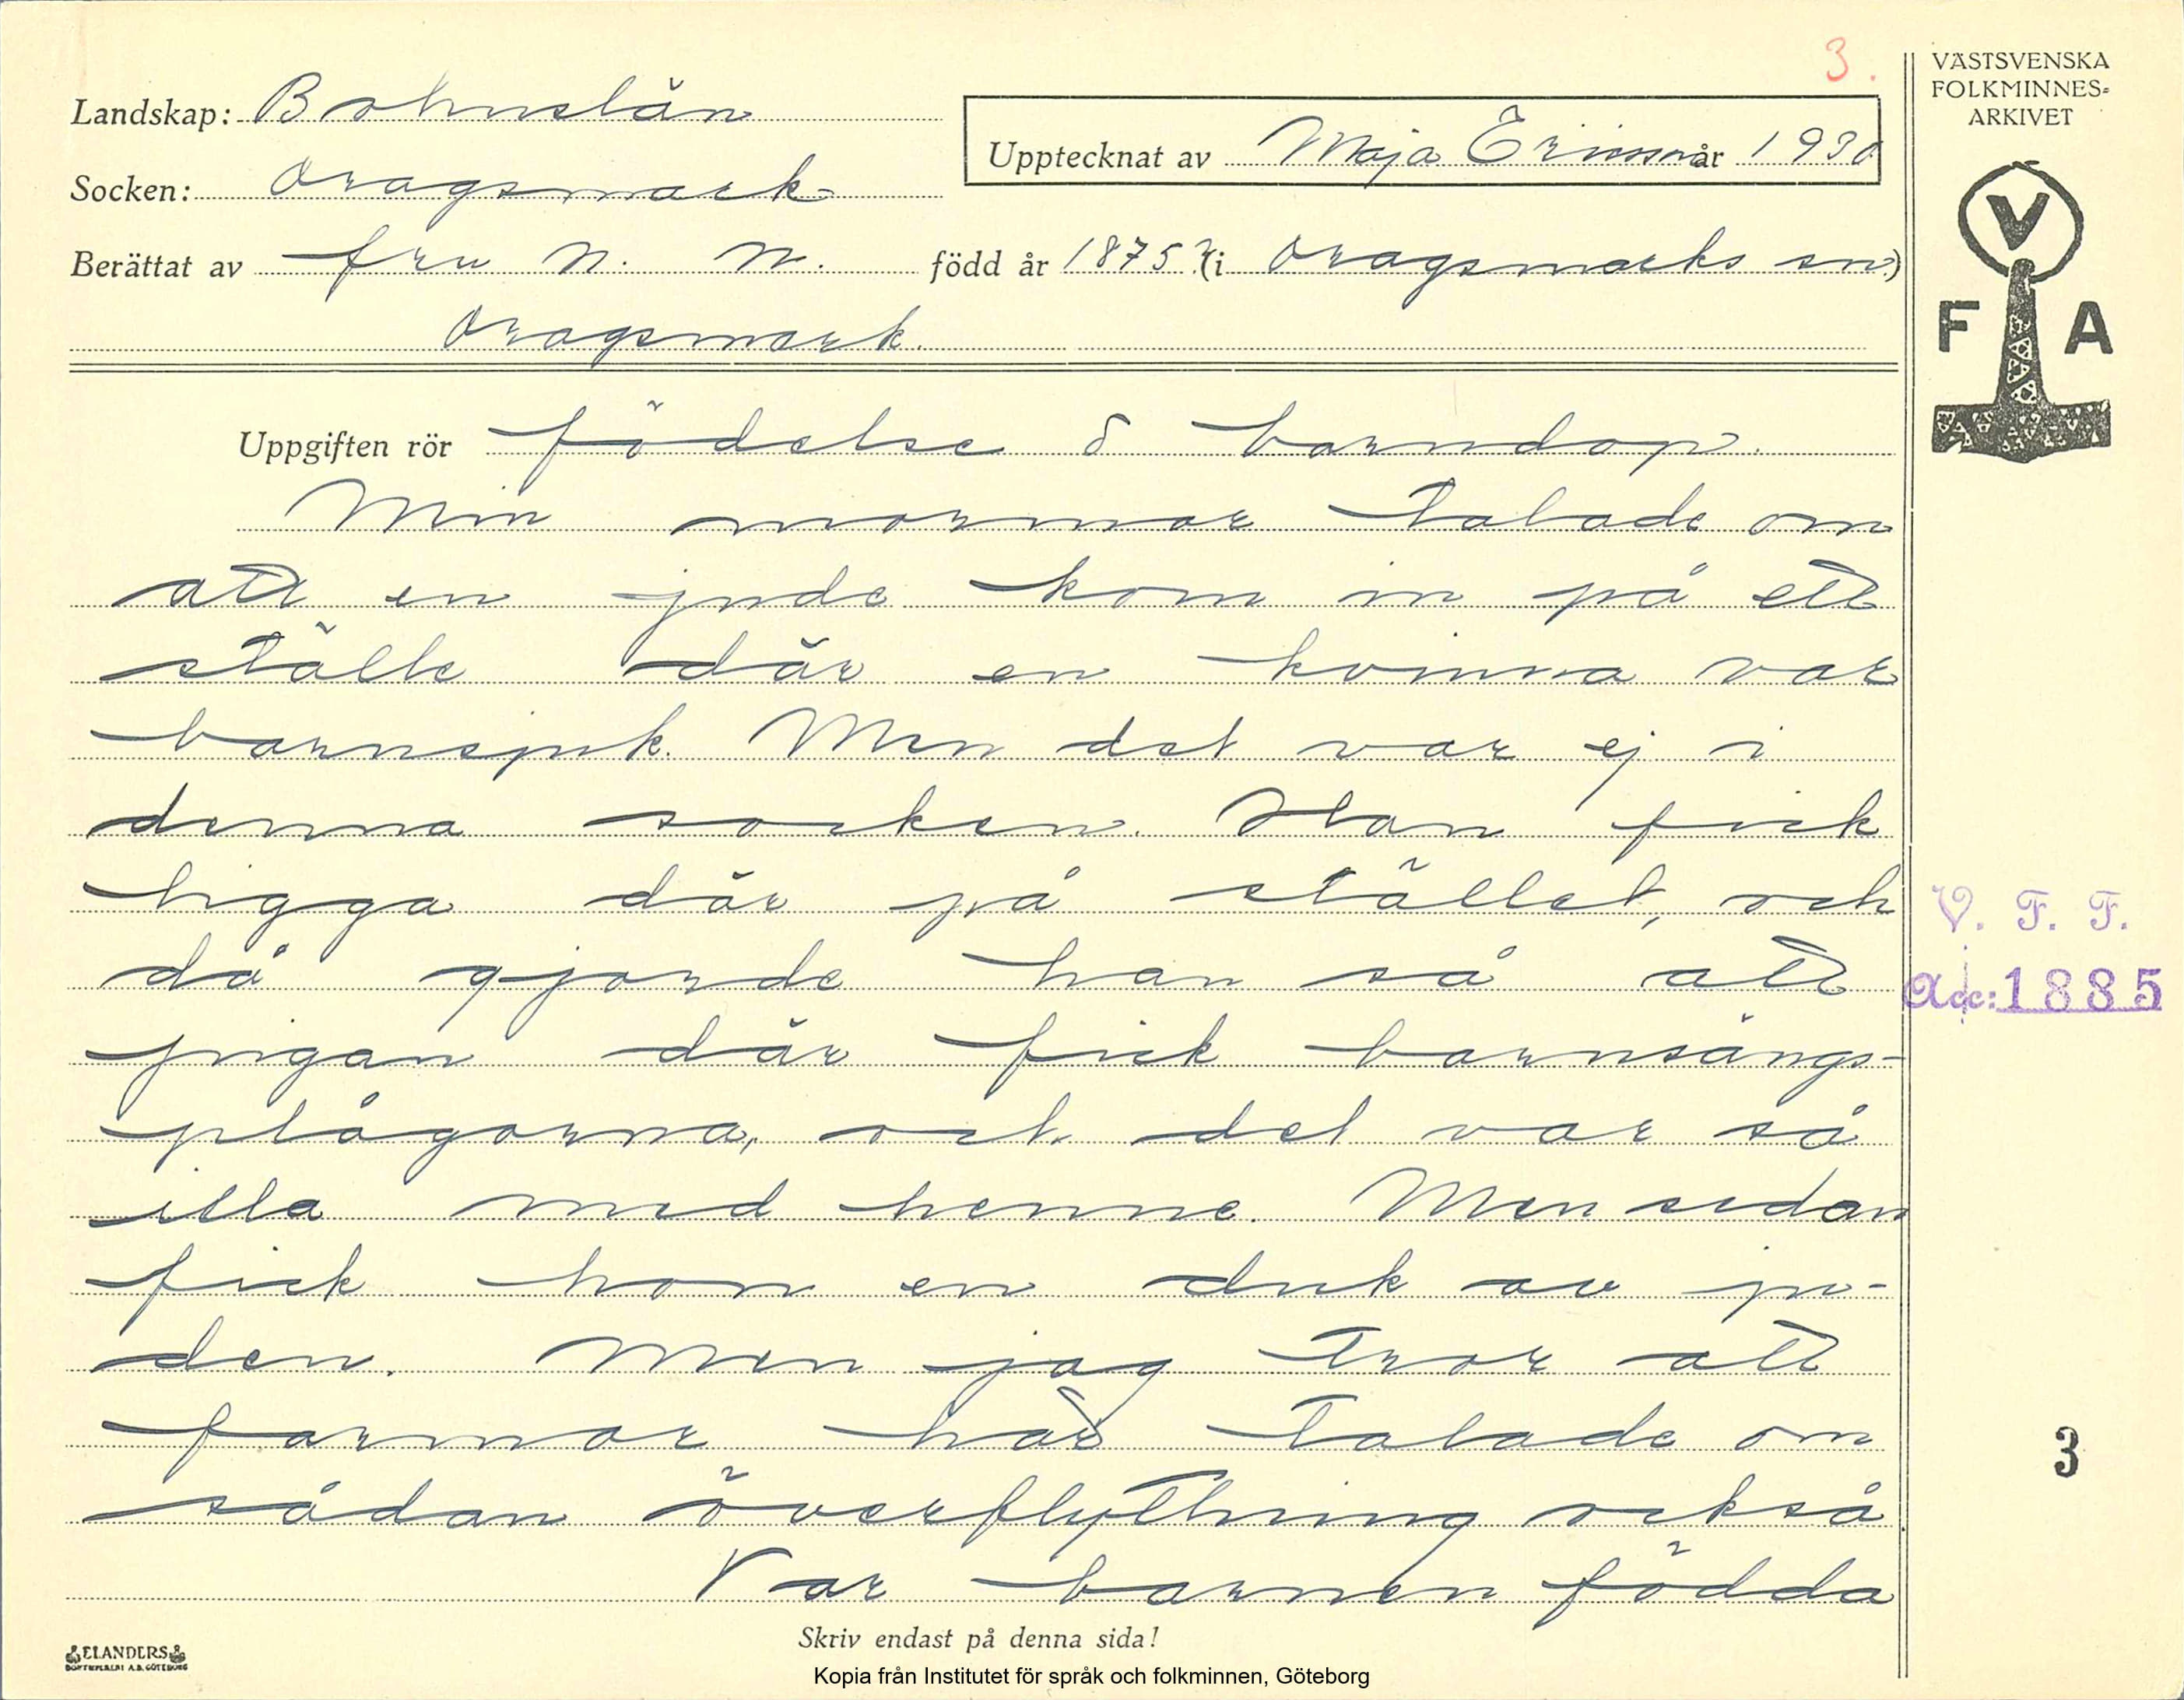 3.
VÄSTSVENSKA
FOLKMINNES-
ARKIVET
Landskap: Bohuslän
Upptecknat av Maja Ericson år 1930
Socken: Dragsmark
Berättat av fru N. N. född år 1875? (i Dragsmarks sn)
Dragsmark.
V
F A
Uppgiften rör födelse o barndop.
Min mormor talade om
att en jude kom in på ett
ställe där en kvinna var
barnsjuk. Men det var ej i
denna socken. Han fick
ligga där på stället, och
då gjorde han så att
pigan där fick barnsängs-
plågorna, och det var så
illa med henne. Men sedan
fick hon en duk av ju-
den. Men jag tror att
farmor talade om
sådan överflyttning också
Var barnen födda
V. F. F.
Acc: 1885
3
Skriv endast på denna sida!
ELANDERS
BOKTRYCKERI A.B. GÖTEBORG
Kopia från Institutet för språk och folkminnen, Göteborg